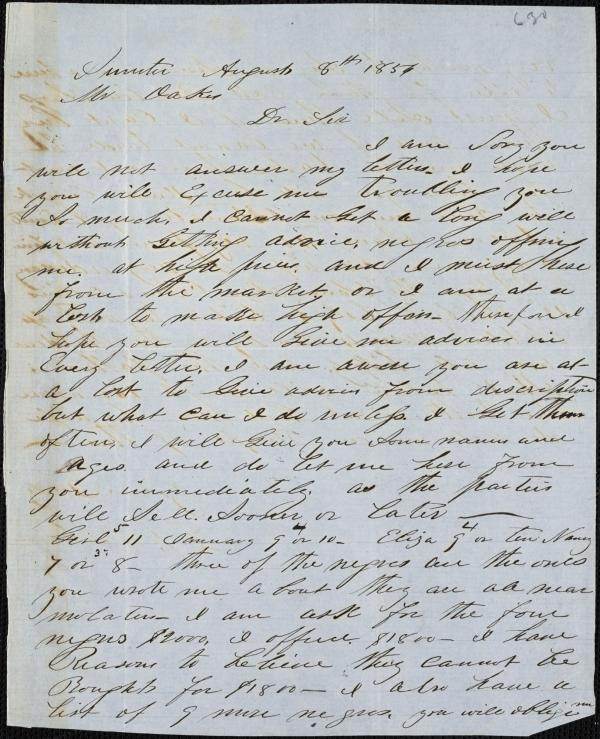 630
Sumter August 8th 1854
Mr Oakes
Dr Sir
I am Sory you
will not answer my letters I hope
you will Excuse me Troubling you
So much, I cannot Get a long will
without Getting advice, negros offind
me, at high price, and I must hear
from the market, or I am at a
Lost to make high offers- therefor I
hope you will Give me advices in
Every letter. I am awere you are at
a Lost to Give advice from description
but what can I do unless I Get them
often, I will Give you Some names and
Ages. and do let me hear from
you immediately, as the parties
will Sell. Sooner or Later
Girl 5 11 9 4 or 10- Eliza 9 4 or ten Nancy
7 or 3 8- three of the negros are the ones
you wrote me a bout they are all near
molatu- I am ask for the four
negros $2000, I offerd. $1800- I have
Reasons to beleive they cannot be
Bought for $1800- I also have a
list of 9 more negros, you will oblige me